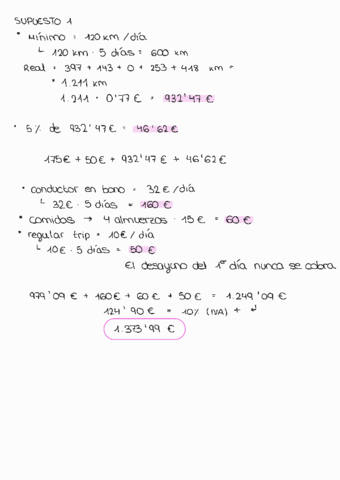 SUPUESTO 1
• Mínimo = 120 km / día
↳ 120 km · 5 días = 600 km
Real = 397 + 143 + 0 + 253 + 418 km =
• 1.211 km
1.211 · 0'77 € = 932'47 €
• 5% de 932'47 € = 46'62 €
175 € + 50 € + 932'47 € + 46'62 €
• conductor en bono = 32 € / día
↳ 32 € · 5 días = 160 €
• comidas → 4 almuerzos · 15 € = 60 €
• regular trip + 10 € / día
↳ 10 € · 5 días = 50 €
El desayuno del 1er día nunca se cobra
979'09 € + 160 € + 60 € + 50 € = 1.249'09 €
124'90 € = 10% (IVA) + ↲
1.373'99 €